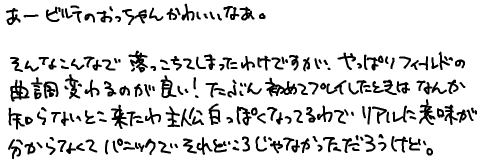 あー ビルテのおっちゃんかわいいなぁ。
そんなこんなで 落っこちてしまったわけですが、やっぱりフィールドの
曲調変わるのが良い！たぶん初めてプレイしたときは なんか
知らないとこ来たわ 主人公白っぽくなってるわで リアルに意味が
分からなくて パニックで それどころじゃなかっただろうけど。